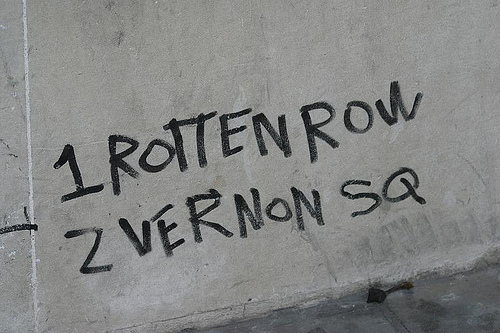 1 ROTTEN ROW
2 VERNON SQ